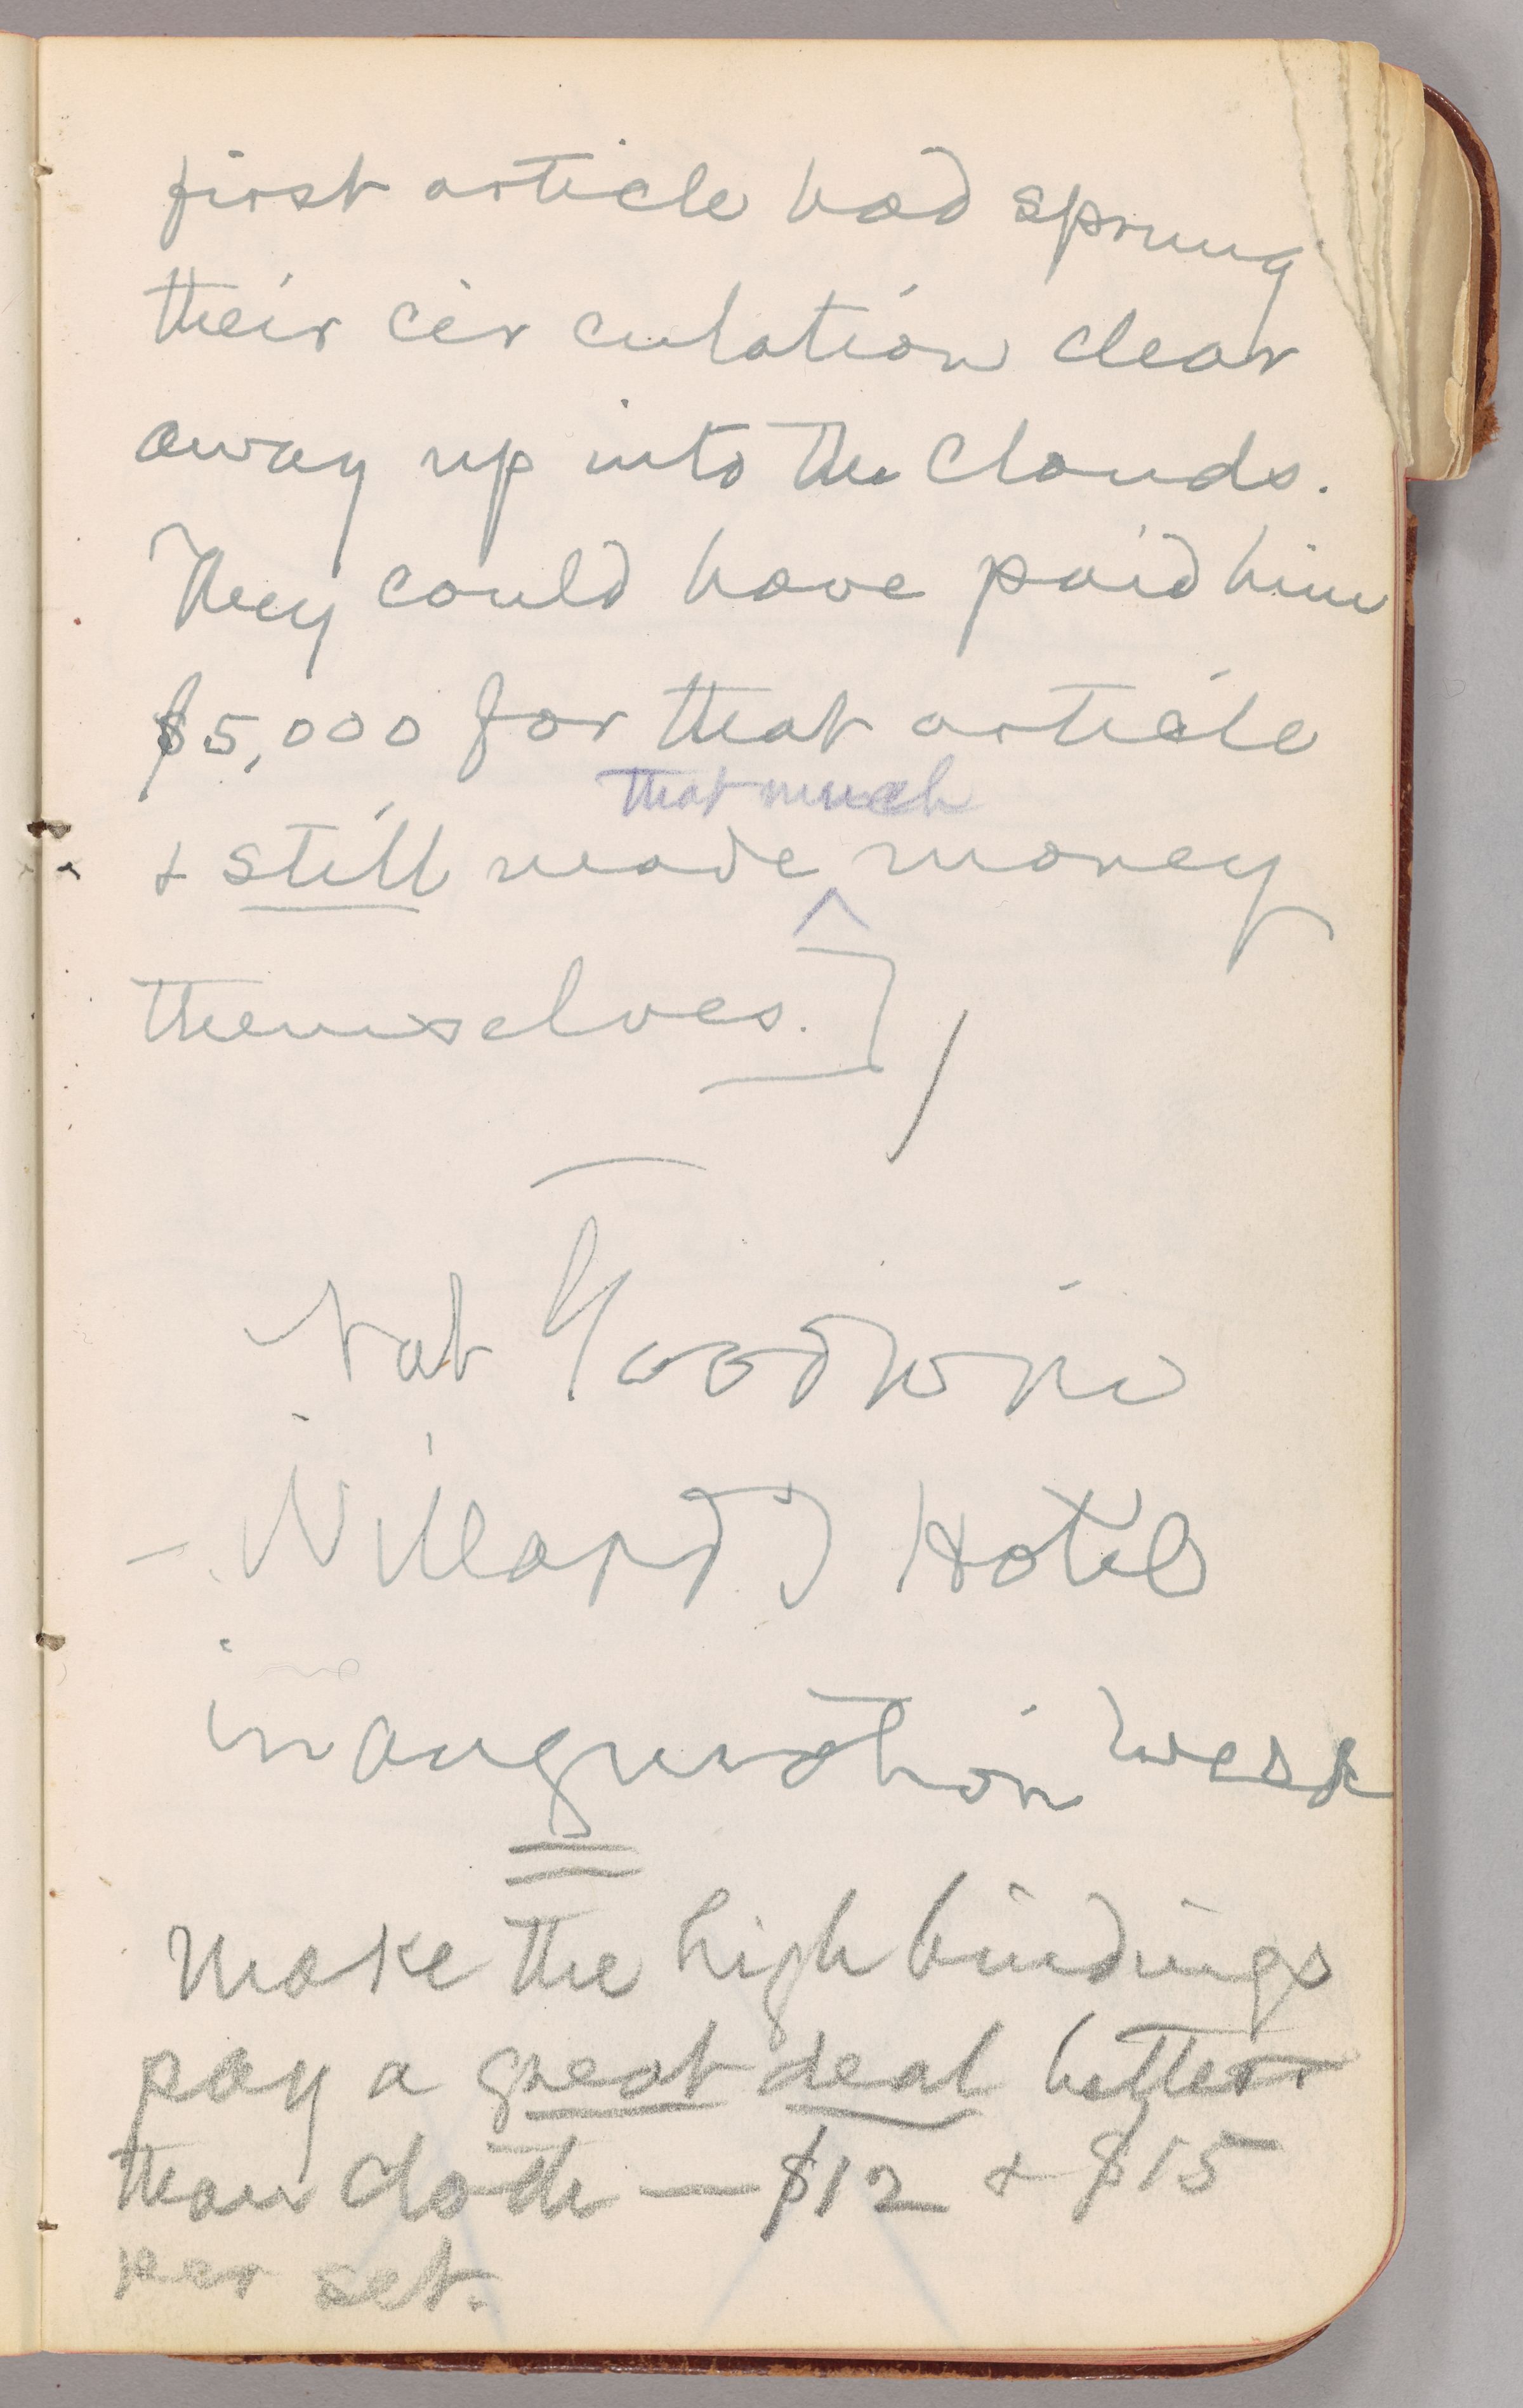 first article had sprung
their circulation clear
away up into the clouds.
They could have paid him
$5,000 for that article
that much
& still made ^ money
themselves.]
/
Nat Goodwin
— Willard's Hotel
inauguration week
Make the high bindings
pay a great deal better
than cloth — $12 & $15
per set.